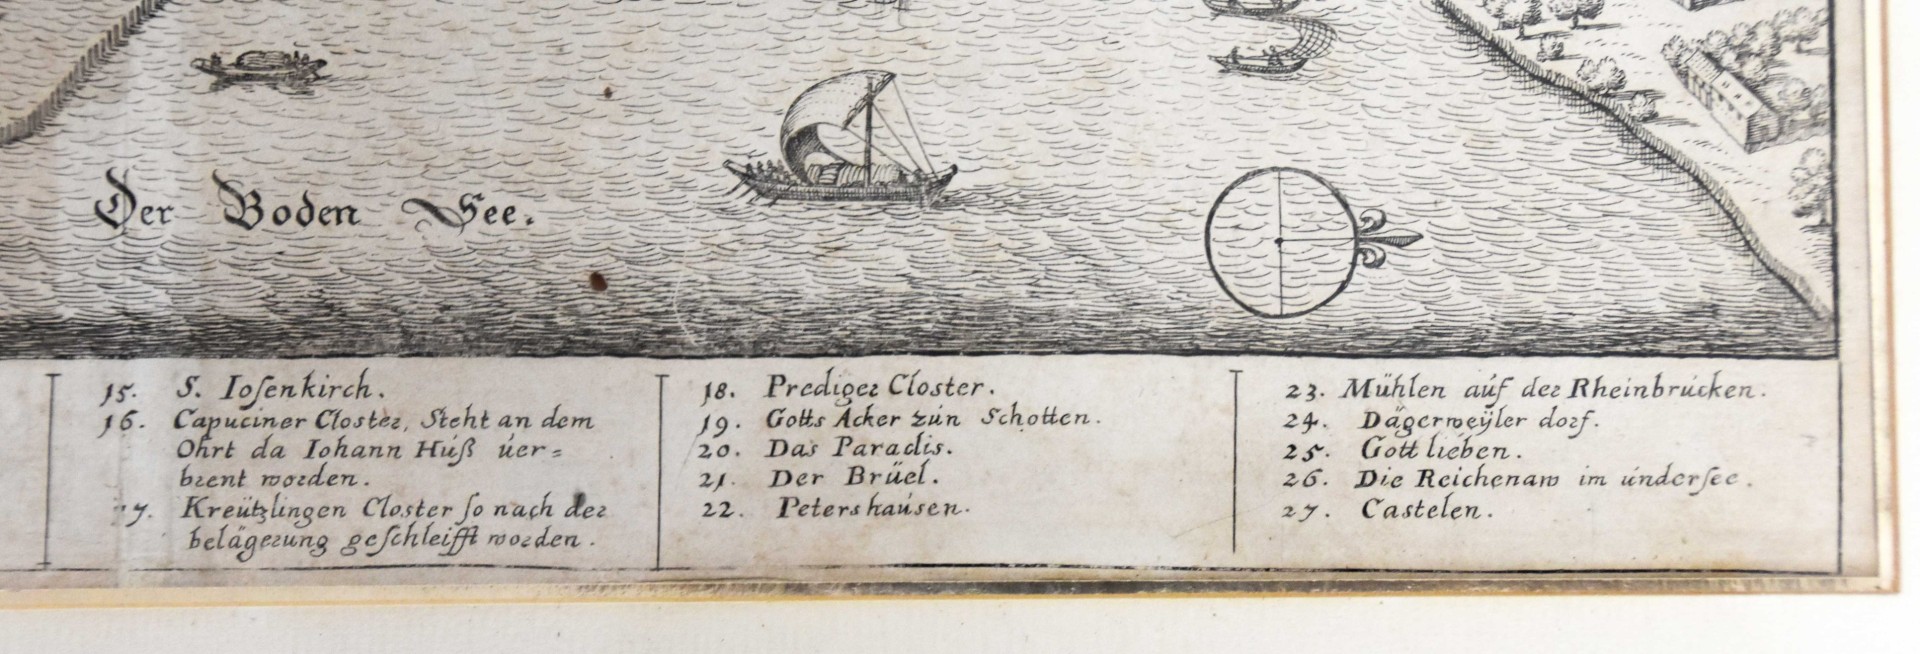 Der Boden See.
15. S. Iosenkirch.
16. Capuciner Closter, Steht an dem
Ohrt da Iohann Huß ver=
brent worden.
17. Kreützlingen Closter so nach der
belägerung geschleifft worden.
18. Prediger Closter.
19. Gotts Acker zun Schotten.
20. Das Paradis.
21. Der Brüel.
22. Petershausen.
23. Mühlen auf der Rheinbrucken.
24. Dägerweÿler dorf.
25. Gottlieben.
26. Die Reichenaw im undersee.
27. Castelen.